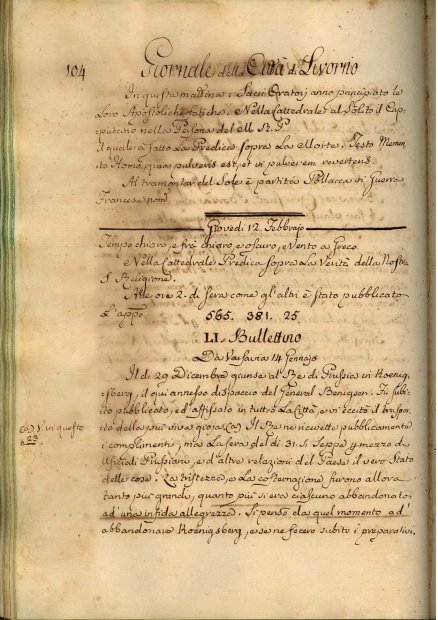 104 Giornale della Città di Livorno
In questa mattina i Sacri Oratorj anno principiato le
Loro Apostoliche fatiche. Nella Cattedrale al Solito il Cap-
puccino nella Persona del M. R. P.
il quale à fatto La Predica sopra La Morte. Testo Memen-
to Homo quia pulveris est, et in pulverem reverteris.
Al tramontar del Sole è partita Pollacca in Guerra
Francese nom.
Giovedì 12. Febbrajo
Tempo chiaro, e frà chiaro, e oscuro, e Vento a Greco
Nella Cattedrale Predica sopra La Verità della Nostra
S. Religione.
Alle ore 2. di Sera come gl'altri è Stato pubblicato
L'app.
565. 381. 25.
LI. Bullettino
Da Varsavia 14 Gennajo
Il dì 29 Dicembre giunse al Re di Prussia in Koenig-
sberg, il qui annesso dispaccio del General Benigsen. Fù subi-
to pubblicato, ed affissato in tutta La Città, e vi eccitò i
della più viva gioja (a) Il Re ne ricevette pubblicamente
(a) V. in questo
a 23
i complimenti; ma La sera del dì 31 si Seppe p mezzo de
Uficiali Prussiani, e d'altre relazioni del Paese il vero Stato
delle cose. La tristezza, e La costernazione furono allora
tanto più grandi, quanto più si era ciascuno abbandonato
ad' una infida allegrezza. Si pensò da quel momento ad'
abbandonare Koenigsberg, e se ne fecero subito i preparativi.